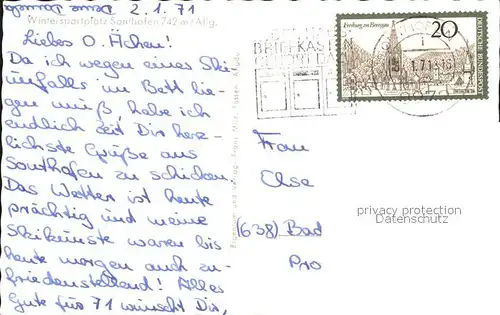 2.1.71
Wintersportplatz Sonthofen 742 m / Allg.
Liebes O. Ächen!
Da ich wegen eines Ski-
unfalls im Bett lie-
gen muß, habe ich
endlich Zeit Dir herz-
lichste Grüße aus
Sonthofen zu schicken.
Das Wetter ist heute
prächtig und meine
Skikünste waren bis
heute morgen auch zu-
friedenstellend! Alles
Gute für 71 wünscht Dir,
BRIEFKASTEN
GEHÖRT DAZU
Freiburg im Breisgau
20
Frau
Else
privacy protection
Datenschutz
(638) Bad